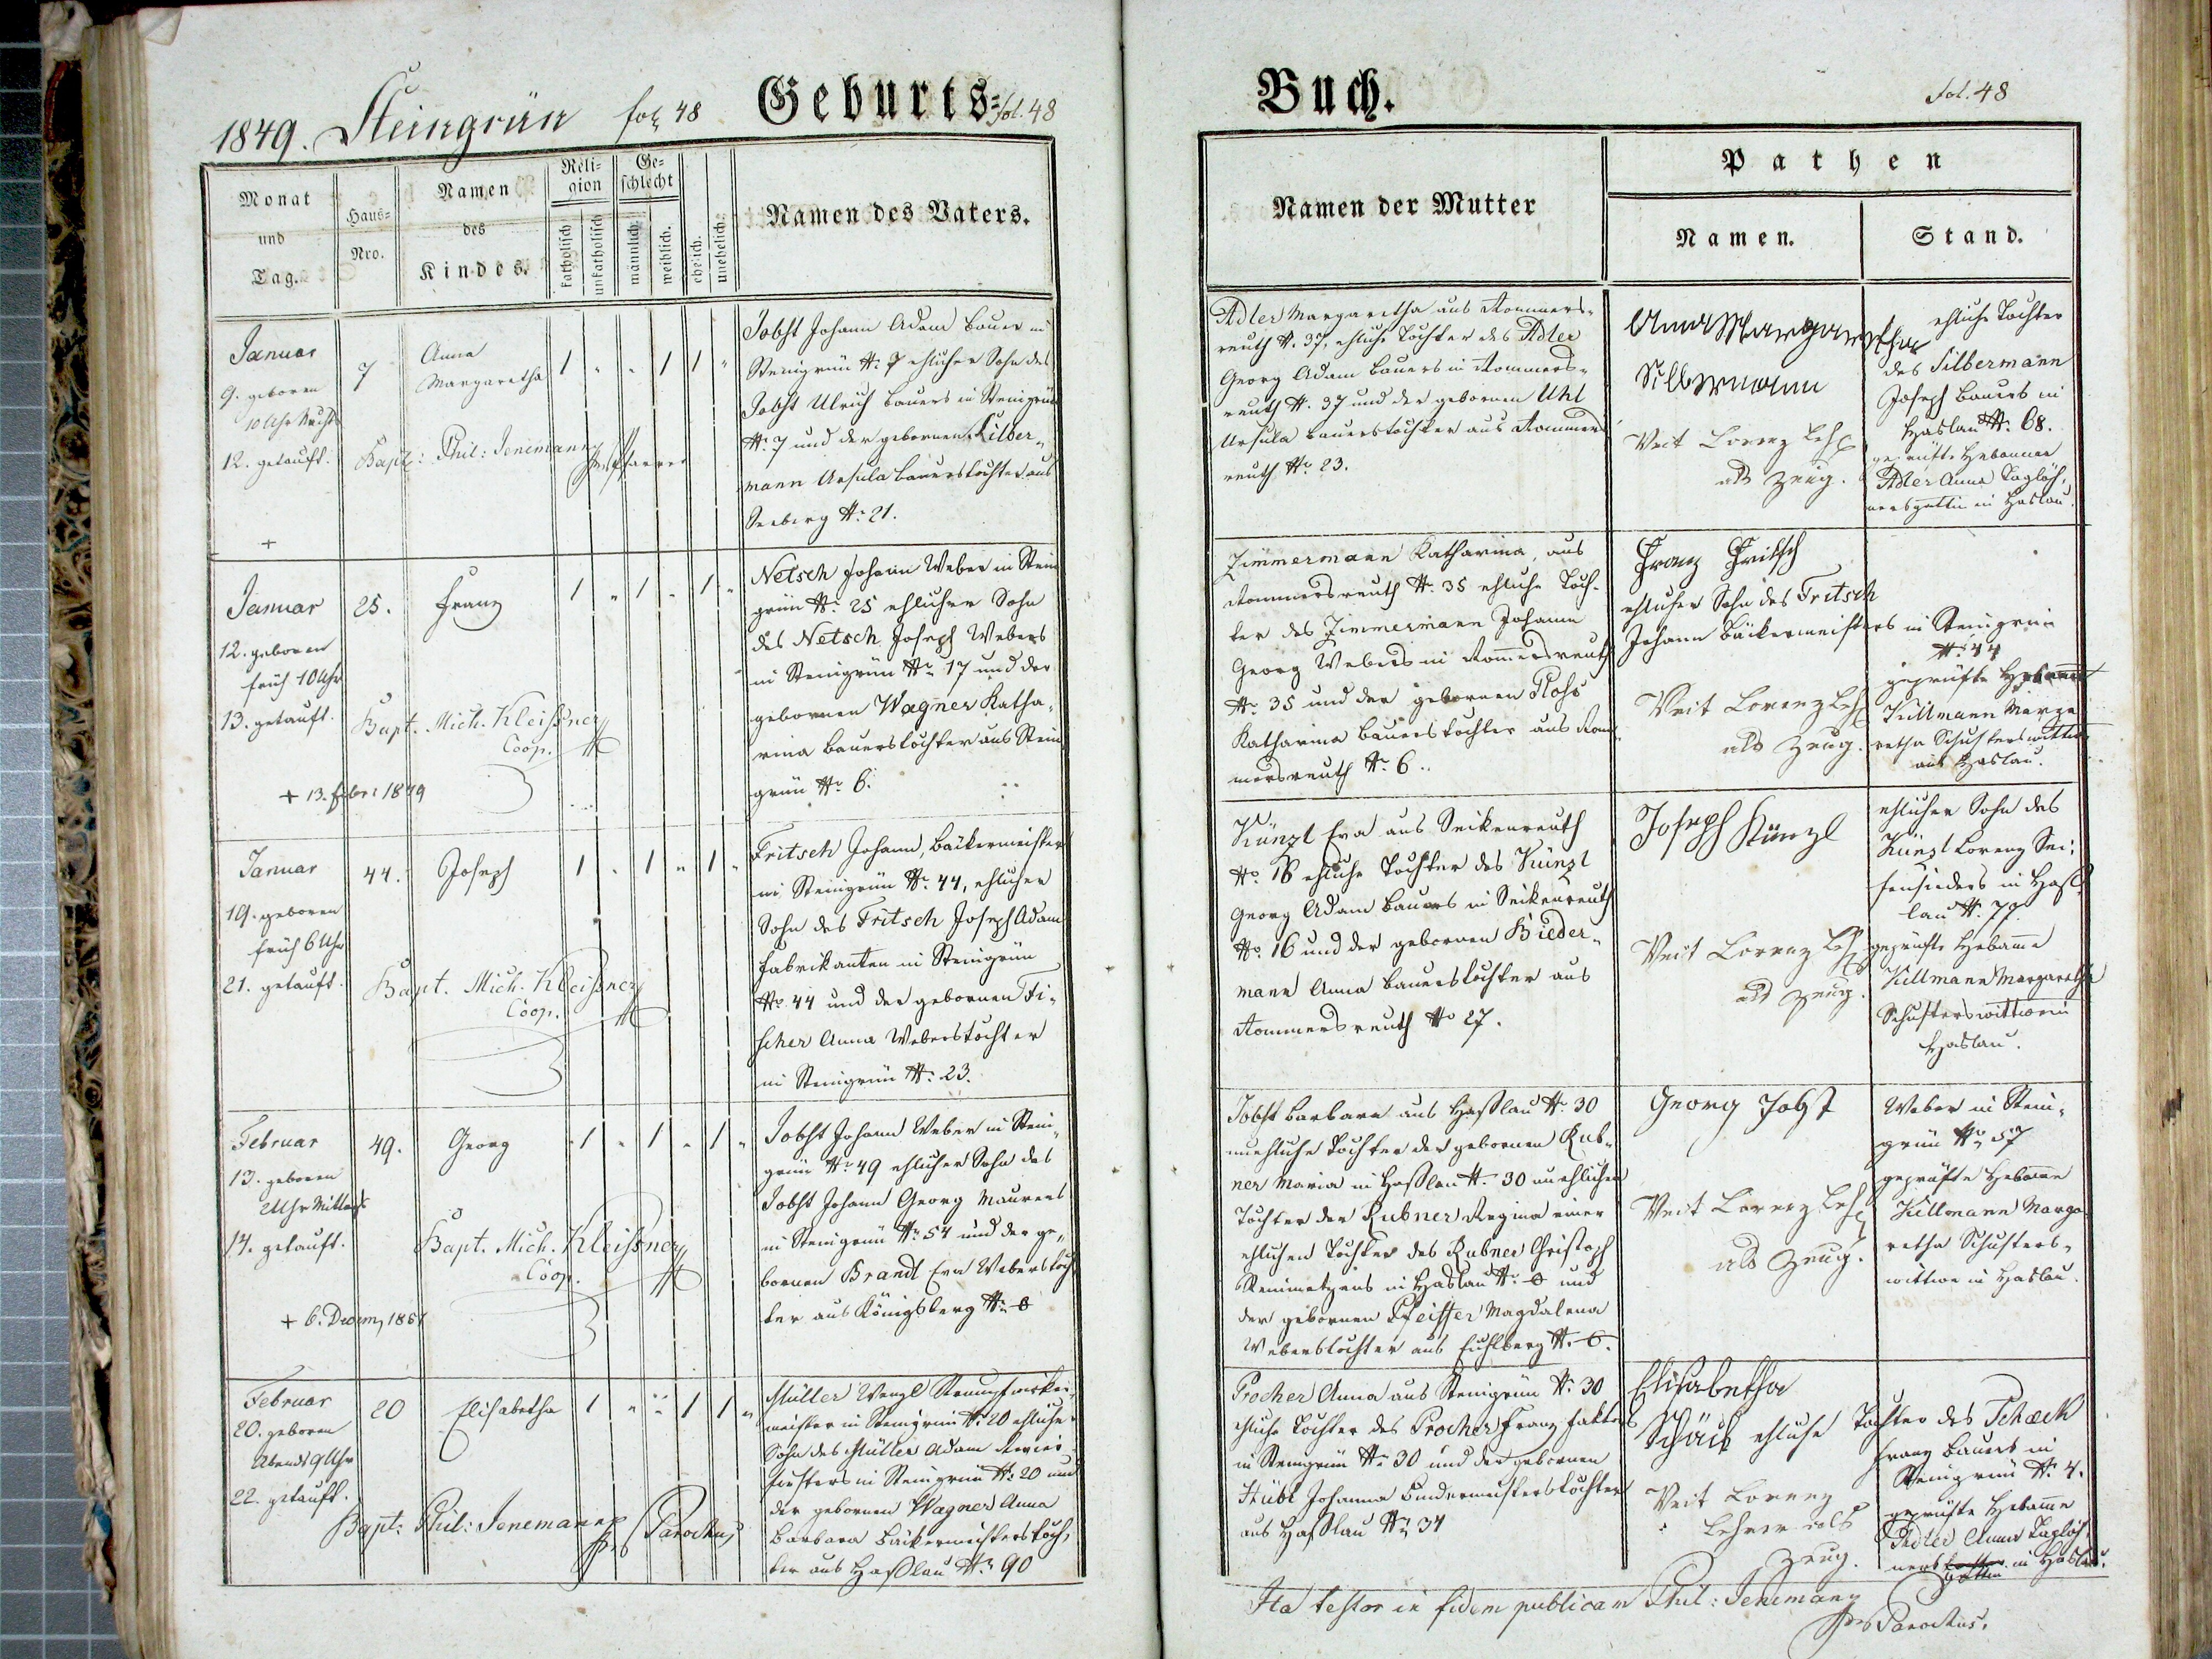 1849. Steingrün fol 48 Geburts= fol. 48
Monat und Tag.
Haus= Nro.
Namen des Kindes.
Reli= gion
katholisch
unkatholisch
Ge= schlecht
männlich.
weiblich.
ehelich.
unehelich.
Namen des Vaters.
Januar
9. geboren
10 Uhr Nachts
12. getauft.
7
Anna
Margaretha
1 " " 1 1 "
Bapt: Phil: Jenemann
Pfarrer
+
Jobst Johann Adam Bauer in
Steingrün N. 7 ehlicher Sohn des
Jobst Ulrich Bauers in Steingrün
N. 7 und der gebornen Silber-
mann Ursula Bauerstochter aus
Seeberg N. 21.
Januar
12. geboren
früh 10 Uhr
13. getauft.
25.
Franz
1 " 1 " 1 "
Bapt. Mich. Kleißner
Coop.
+ 13. Febr: 1849
Netsch Johann Weber in Stein
grün N. 25 ehlicher Sohn
des Netsch Joseph Webers
in Steingrün N. 17 und der
gebornen Wagner Katha-
rina Bauerstochter aus Stein
grün N. 6.
Januar
19. geboren
früh 6 Uhr
21. getauft.
44.
Joseph
1 " 1 " 1 "
Bapt. Mich. Kleißner
Coop.
Fritsch Johann, Bäckermeister
in Steingrün N. 44, ehlicher
Sohn des Fritsch Joseph Adam
Fabrikanten in Steingrün
No. 44 und der gebornen Fi-
scher Anna Weberstochter
in Steingrün N. 23.
Februar
13. geboren
2 Uhr Mittags
14. getauft.
49.
Georg
1 " 1 " 1 "
Bapt. Mich. Kleißner
Coop.
Jobst Johann Weber in Stein-
grün N. 49 ehlicher Sohn des
Jobst Johann Georg Maurers
in Steingrün N. 54 und der ge-
bornen Brandt Eva Weberstoch
ter aus Königsberg N.
Februar
20. geboren
Abends 9 Uhr
22. getauft.
20
Elisabetha
1 " " 1 1 "
Bapt: Phil: Jenemann
Parochus
Müller Wenzl Strumpfwirker
meister in Steingrün N. 20 ehlicher
Sohn des Müller Adam Revier
försters in Steingrün N. 20 und
der gebornen Wagner Anna
Barbara Bäckermeisterstoch-
ter aus Haßlau N. 90
Buch.
fol. 48
Namen der Mutter
Pathen
Namen.
Stand.
Adler Margaretha aus Rommers-
reuth N. 37, ehliche Tochter des Adler
Georg Adam Bauers in Rommers-
reuth N. 37 und der gebornen Uhl
Ursula Bauerstochter aus Rommers
reuth N. 23.
Anna Margaretha
Silbermann
Veit Lorenz Leh
als Zeug.
ehliche Tochter
des Silbermann
Joseph Bauers in
Haslau N. 68.
geprüfte Hebamme
Adler Anna Taglöh-
nersgattin in Haslau.
Zimmermann Katharina, aus
Rommersreuth N. 35 ehliche Toch-
ter des Zimmermann Johann
Georg Webers in Rommersreuth
N. 35 und der gebornen Ploß
Katharina Bauerstochter aus Rom
mersreuth N. 6.
Franz Fritsch
ehlicher Sohn des Fritsch
Johann Bäckermeisters in Steingrün
N. 44
Veit Lorenz Leh
als Zeug.
geprüfte Hebamme
Killmann Marga
retha Schusterswittwe
aus Haslau.
Künzl Eva aus Seikenreuth
No. 16 ehliche Tochter des Künzl
Georg Adam Bauers in Seikenreuth
No. 16 und der gebornen Bieder-
mann Anna Bauerstochter aus
Rommersreuth No 27.
Joseph Künzl
Veit Lorenz Leh
als Zeug.
ehlicher Sohn des
Künzl Lorenz Sei-
fensieders in Has
lau N. 79.
geprüfte Hebamme
Killmann Margaretha
Schusterswittwe in
Haslau.
Jobst Barbara aus Haßlau N. 30
unehliche Tochter der gebornen Rub-
ner Maria in Haßlau N. 30 unehlichen
Tochter der Rubner Regina einer
ehlichen Tochter des Rubner Christoph
Steinmetzens in Haslau N. und
der gebornen Pfeiffer Magdalena
Weberstochter aus N.
Georg Jobst
Veit Lorenz Leh
als Zeug.
Weber in Stein-
grün No 57
geprüfte Hebamme
Killmann Marga
retha Schusters-
wittwe in Haslau.
Procher Anna aus Steingrün N. 30
ehliche Tochter des Procher Franz Faktors
in Steingrün N. 30 und der gebornen
Stübl Johanna Bindermeisterstochter
aus Haßlau N. 34
Elisabetha
Schäck ehliche Tochter des Schack
Franz Bauers in
Steingrün N. 4.
Veit Lorenz
Lehrer als
Zeug.
geprüfte Hebamme
Adler Anna Taglöh-
ners gattin in Haslau.
Ita testor in fidem publicam Phil: Jenemann
Parochus.